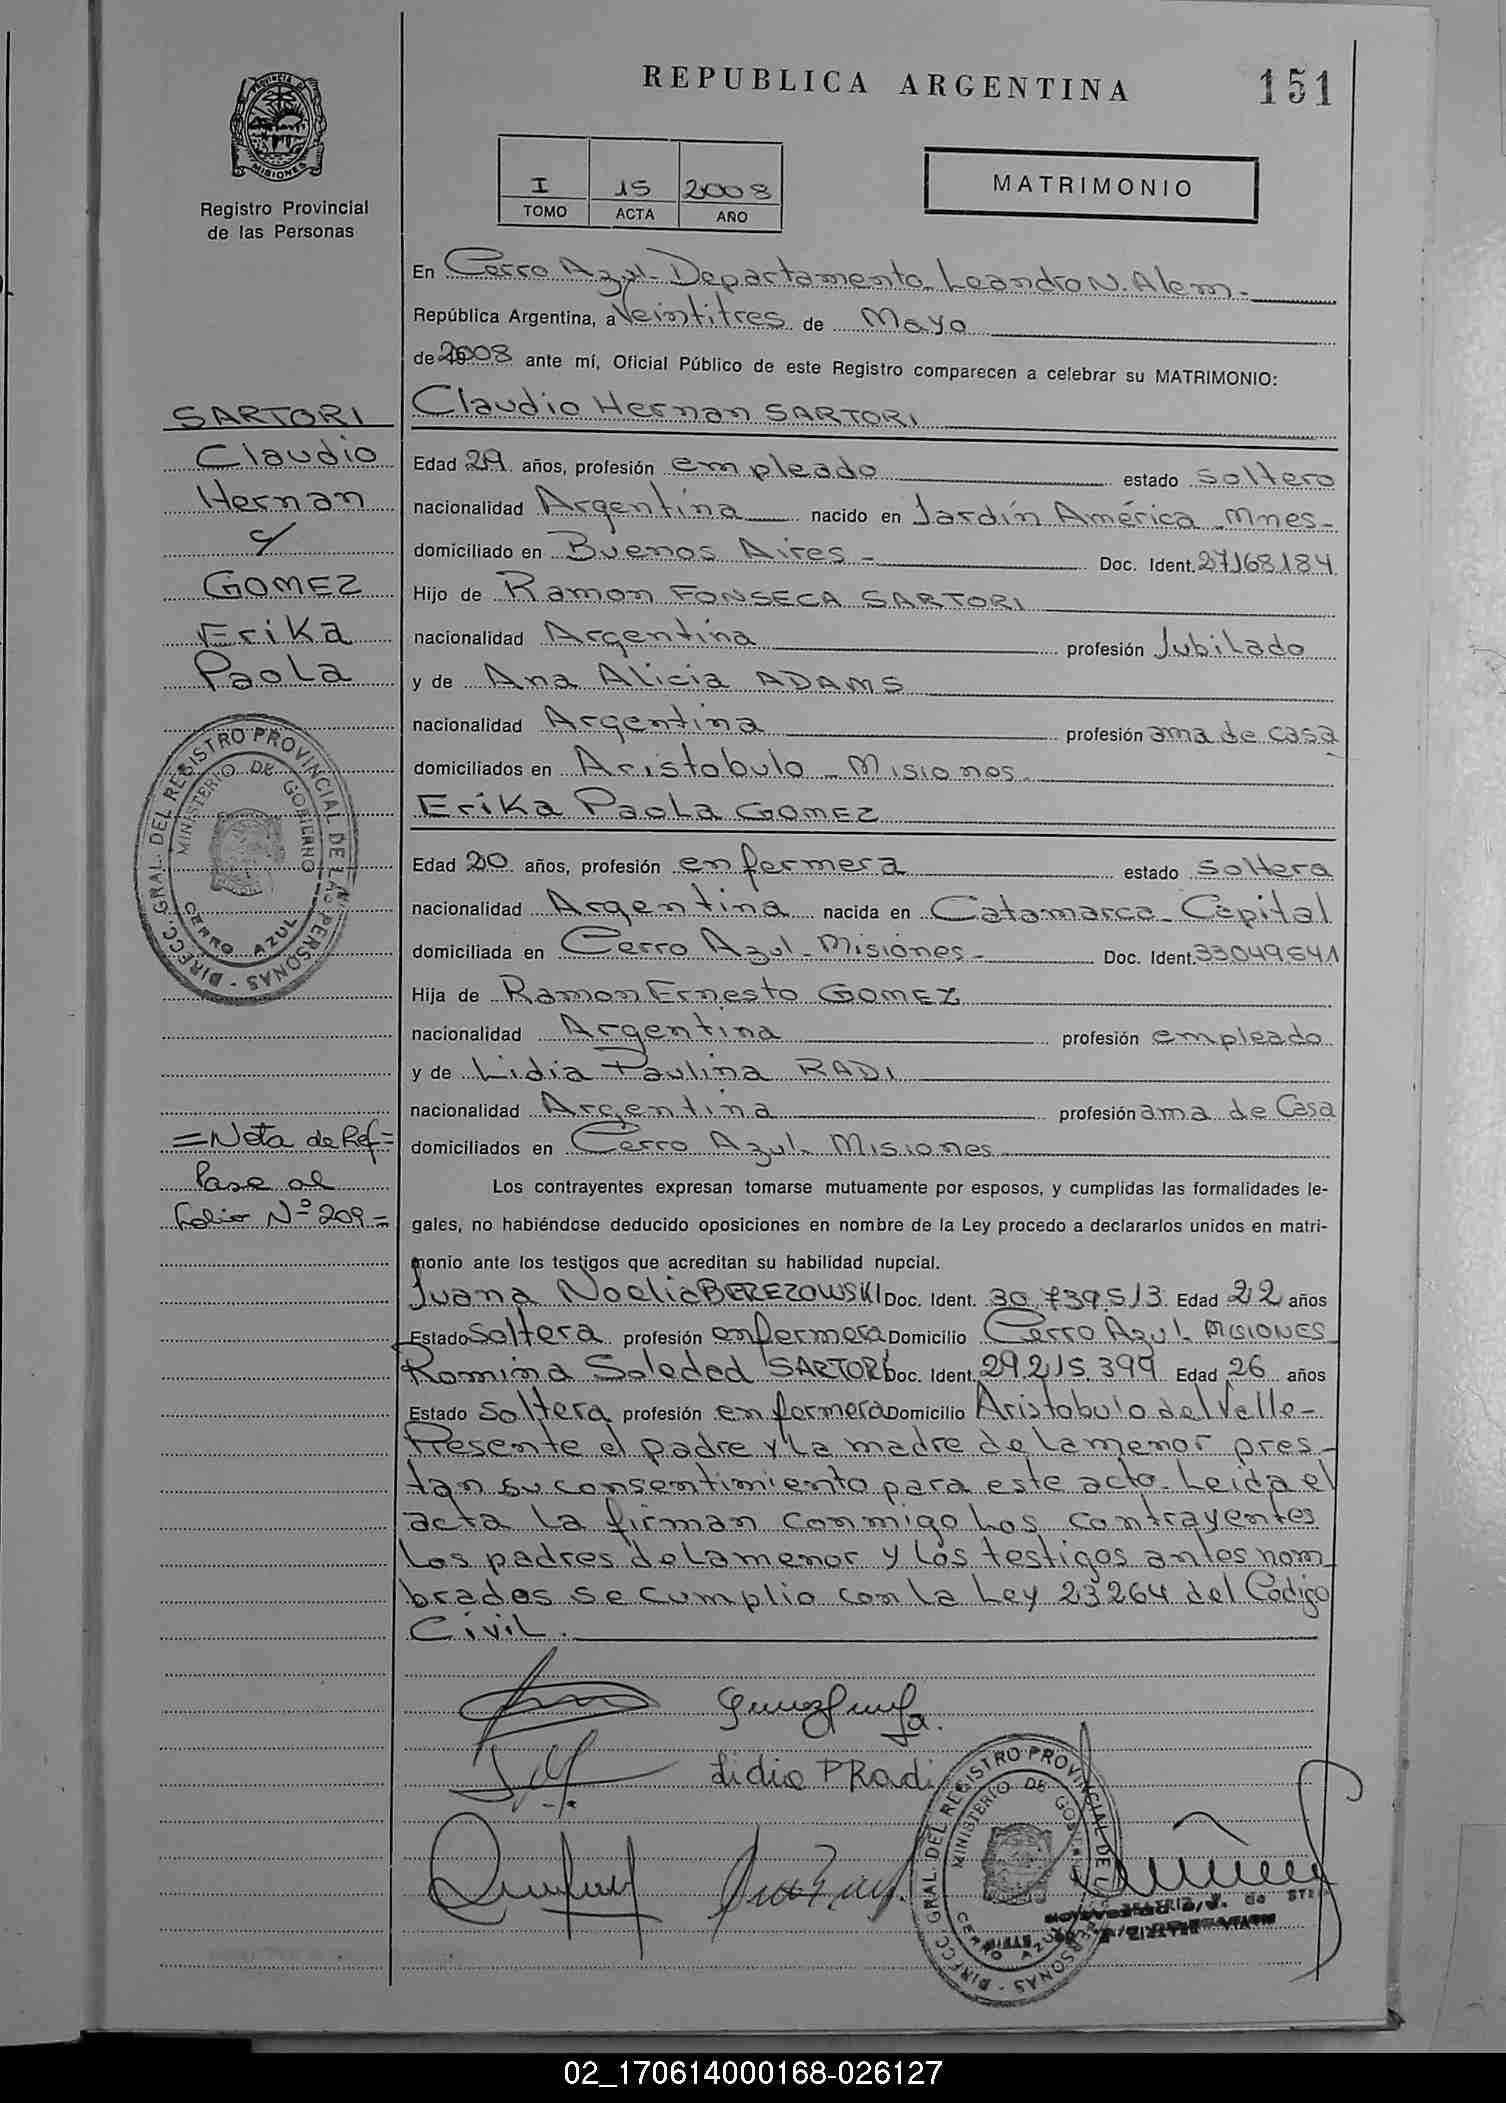 REPUBLICA ARGENTINA
151
PROVINCIA D
MISIONES
Registro Provincial
de las Personas
I 15 2008
TOMO ACTA AÑO
MATRIMONIO
En Cerro Azul - Departamento Leandro N. Alem -
República Argentina, a Veintitres de Mayo
de 2008 ante mí, Oficial Público de este Registro comparecen a celebrar su MATRIMONIO:
Claudio Hernan SARTORI
SARTORI
Claudio
Hernan
y
GOMEZ
Erika
Paola
Edad 29 años, profesión empleado estado soltero
nacionalidad Argentina nacido en Jardín América - Mnes -
domiciliado en Buenos Aires - Doc. Ident. 27168184
Hijo de Ramon FONSECA SARTORI
nacionalidad Argentina profesión Jubilado
y de Ana Alicia ADAMS
nacionalidad Argentina profesión ama de casa
domiciliados en Aristobulo - Misiones
Erika Paola GOMEZ
Edad 20 años, profesión enfermera estado soltera
nacionalidad Argentina nacida en Catamarca - Capital
domiciliada en Cerro Azul - Misiones - Doc. Ident. 33049641
Hija de Ramon Ernesto GOMEZ
nacionalidad Argentina profesión empleado
y de Lidia Paulina RADI
nacionalidad Argentina profesión ama de Casa
domiciliados en Cerro Azul - Misiones
DIRECC. GRAL. DEL REGISTRO PROVINCIAL DE LAS PERSONAS
MINISTERIO DE GOBIERNO
CERRO AZUL
= Nota de Ref =
Pase al
Folio Nº 209 =
Los contrayentes expresan tomarse mutuamente por esposos, y cumplidas las formalidades le-
gales, no habiéndose deducido oposiciones en nombre de la Ley procedo a declararlos unidos en matri-
monio ante los testigos que acreditan su habilidad nupcial.
Juana Noelia BEREZOWSKI Doc. Ident. 30.739.513 Edad 22 años
Estado soltera profesión enfermera Domicilio Cerro Azul - MISIONES
Romina Soledad SARTORI Doc. Ident. 29.215.399 Edad 26 años
Estado soltera profesión enfermera Domicilio Aristobulo del Valle -
Presente el padre y la madre de la menor pres-
tan su consentimiento para este acto. Leida el
acta la firman conmigo los contrayentes
los padres de la menor y los testigos antes nom
brados se cumplio con la Ley 23264 del Codigo
Civil.
Lidia P Radi
DIRECC. GRAL. DEL REGISTRO PROVINCIAL DE LAS PERSONAS
MINISTERIO DE GOBIERNO
CERRO AZUL
02_170614000168-026127